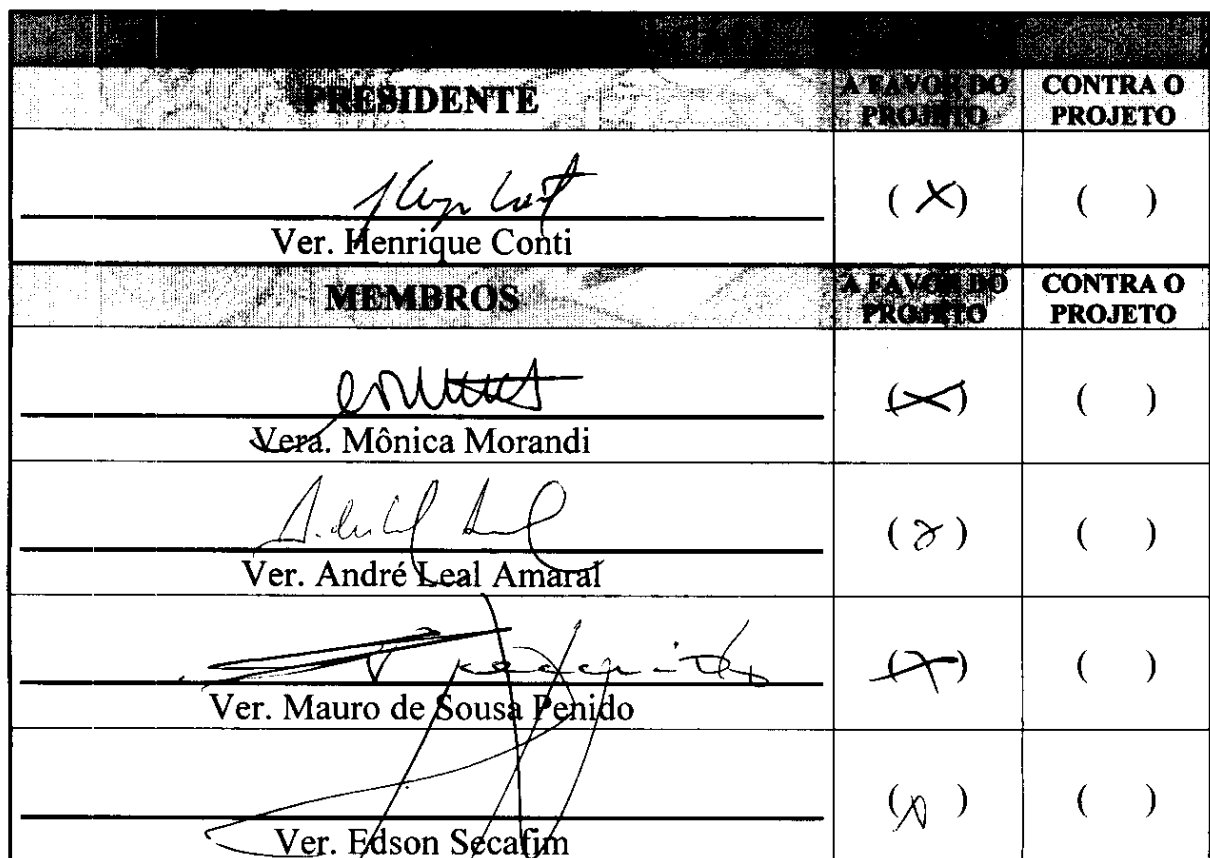 PRESIDENTE
A FAVOR DO PROJETO
CONTRA O PROJETO
( X )
( )
Ver. Henrique Conti
MEMBROS
A FAVOR DO PROJETO
CONTRA O PROJETO
( X )
( )
Vera. Mônica Morandi
( )
Ver. André Leal Amaral
( X )
( )
Ver. Mauro de Sousa Penido
( )
Ver. Edson Secafim